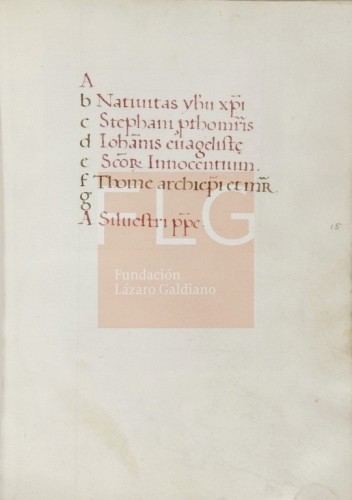 A
b Natiuitas yh̄u xp̄i
c Stephani ꝑthom̄ris
d Ioh̄anis eu̅agelistę
e Sc̄oꝝ Innocentium.
f Thome archiep̄i et m̄r.
g
A Siluestri pp̄e
15
FLG
Fundación
Lázaro Galdiano